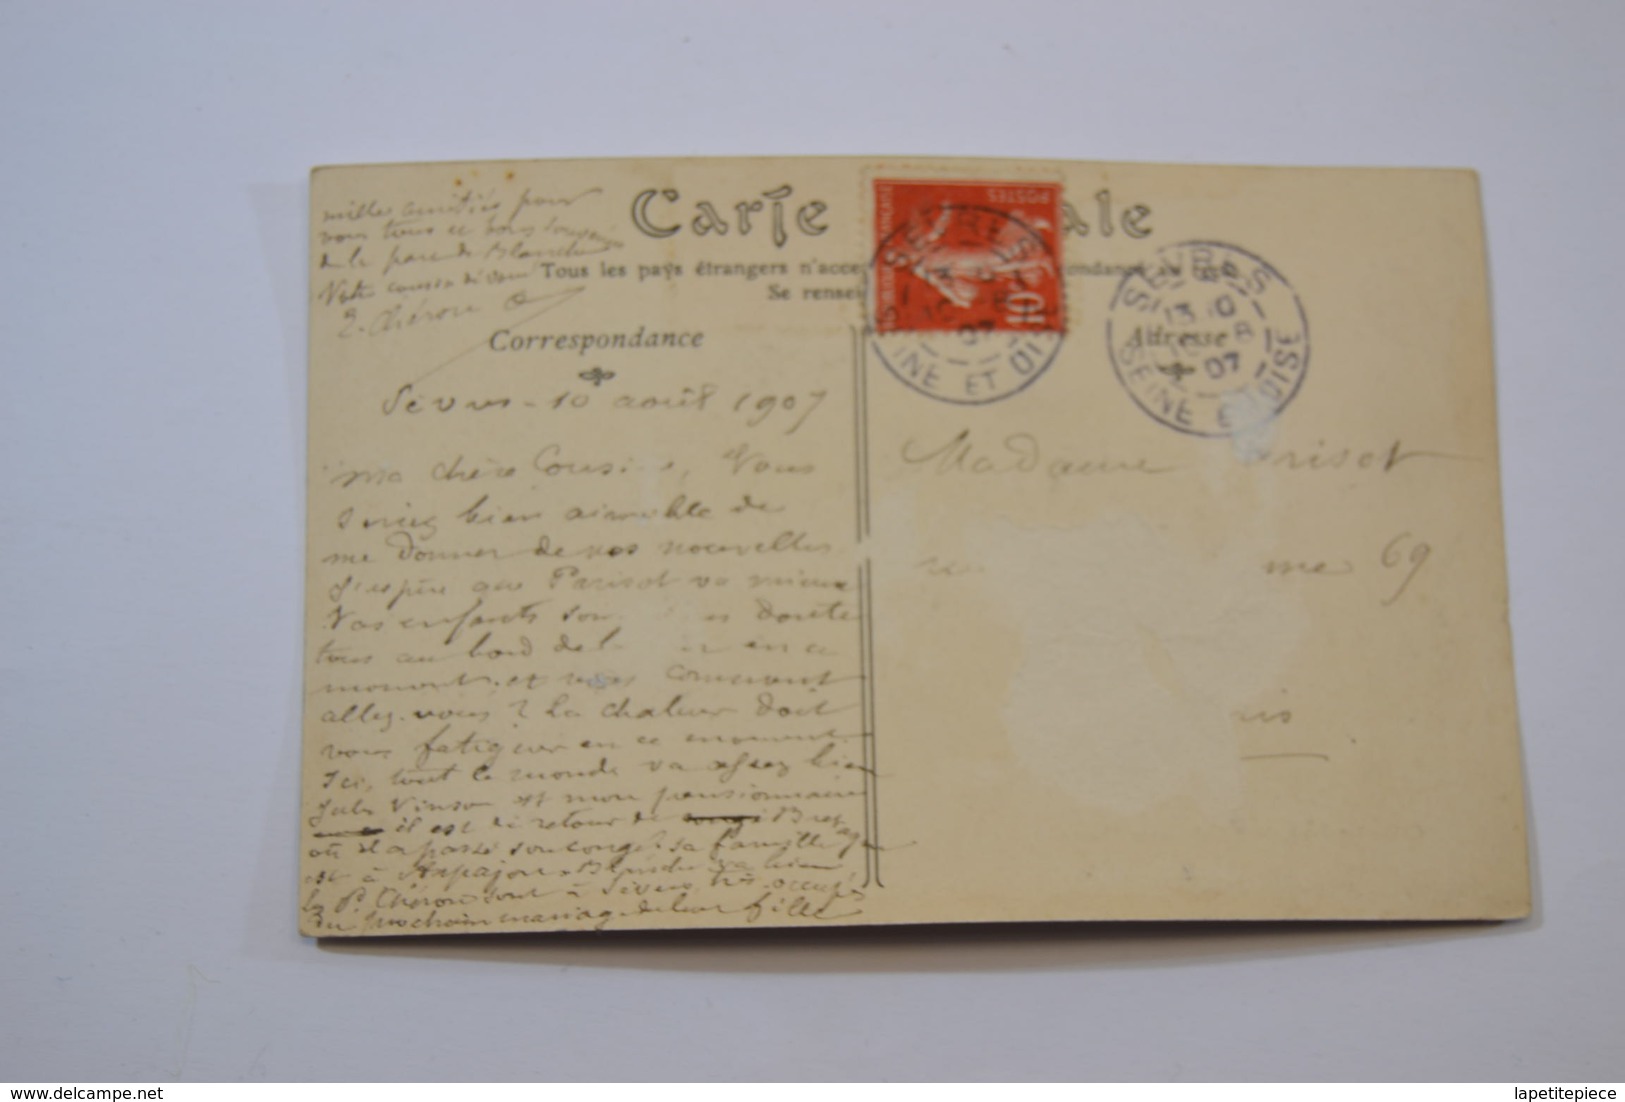 mille amitiés pour
vous tous et bons souvenirs
de la part de Blanche
Votre cousine dévouée
E. Chéron
Carte ale
Tous les pays étrangers n'acce pondance au recto
Se rensei
Correspondance
Adresse
RÉPUBLIQUE FRANÇAISE
POSTES
10
SEVRES
10 8
07
SEINE ET OISE
SEVRES
13 10
10 8
07
SEINE ET OISE
Sèvres - 10 août 1907
Ma chère Cousine, Vous
seriez bien aimable de
me donner de vos nouvelles
J'espère que Parisot va mieux
Vos enfants son s doute
tous au bord de l r en ce
moment, et vous comment
allez-vous ? La chaleur doit
vous fatiguer en ce moment.
Ici, tout le monde va assez bien
Jules Vinson est mon pensionnaire
il est de retour de Bretagne
où il a passé son congé, sa famille
est à Arpajon. Blanche va bien
les P. Chéron sont à Sèvres, très occupés
du prochain mariage de leur fille
Madame risot
me 69
is
www.delcampe.net
lapetitepiece